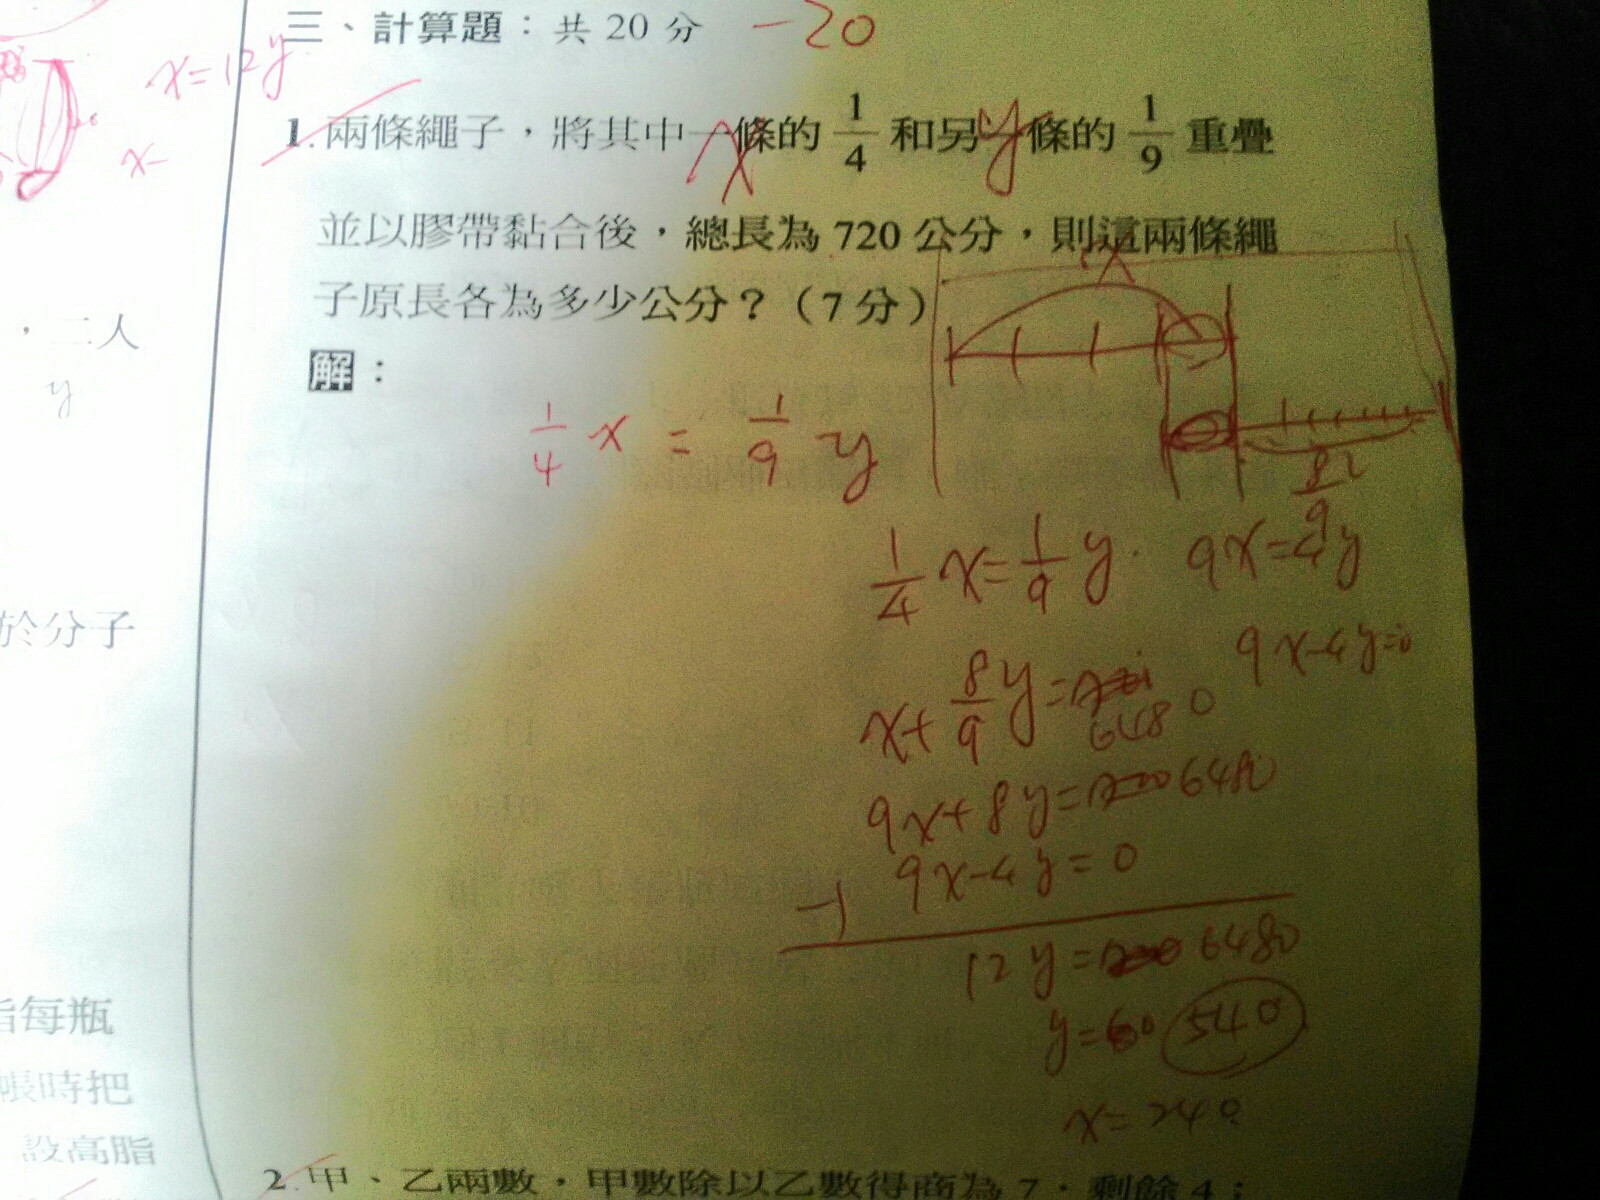 x=12y
x-
，二人
y
於分子
每瓶
帳時把
設高脂
三、計算題：共 20 分 -20
1. 兩條繩子，將其中一條的 1/4 和另一條的 1/9 重疊
x y
並以膠帶黏合後，總長為 720 公分，則這兩條繩
子原長各為多少公分？（7 分）
x
解：
1/4 x = 1/9 y
8/9
1/4 x = 1/9 y . 9x=4y
9x-4y=0
x+ 8/9 y= 6480
9x+8y= 6480
-) 9x-4y=0
12y= 6480
y= 540
x=240
2. 甲、乙兩數，甲數除以乙數得商為 7，剩餘 4；